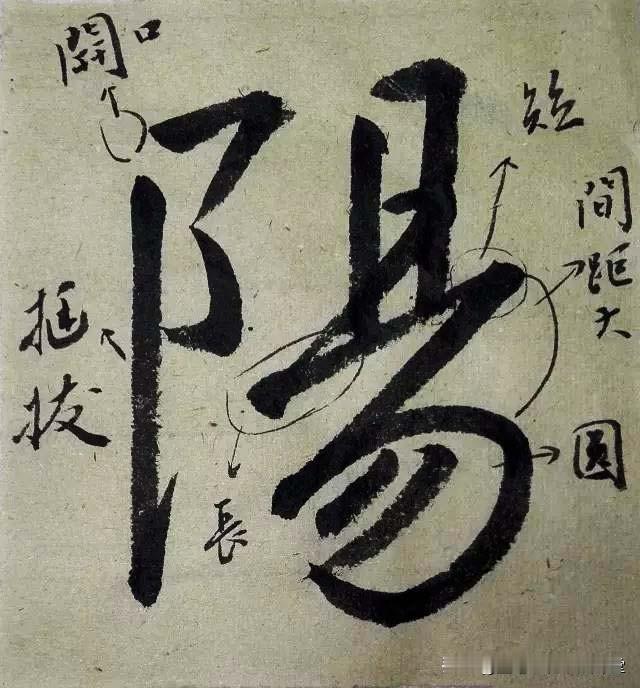 開口
陽
短
間距大
挺拔
長
圓